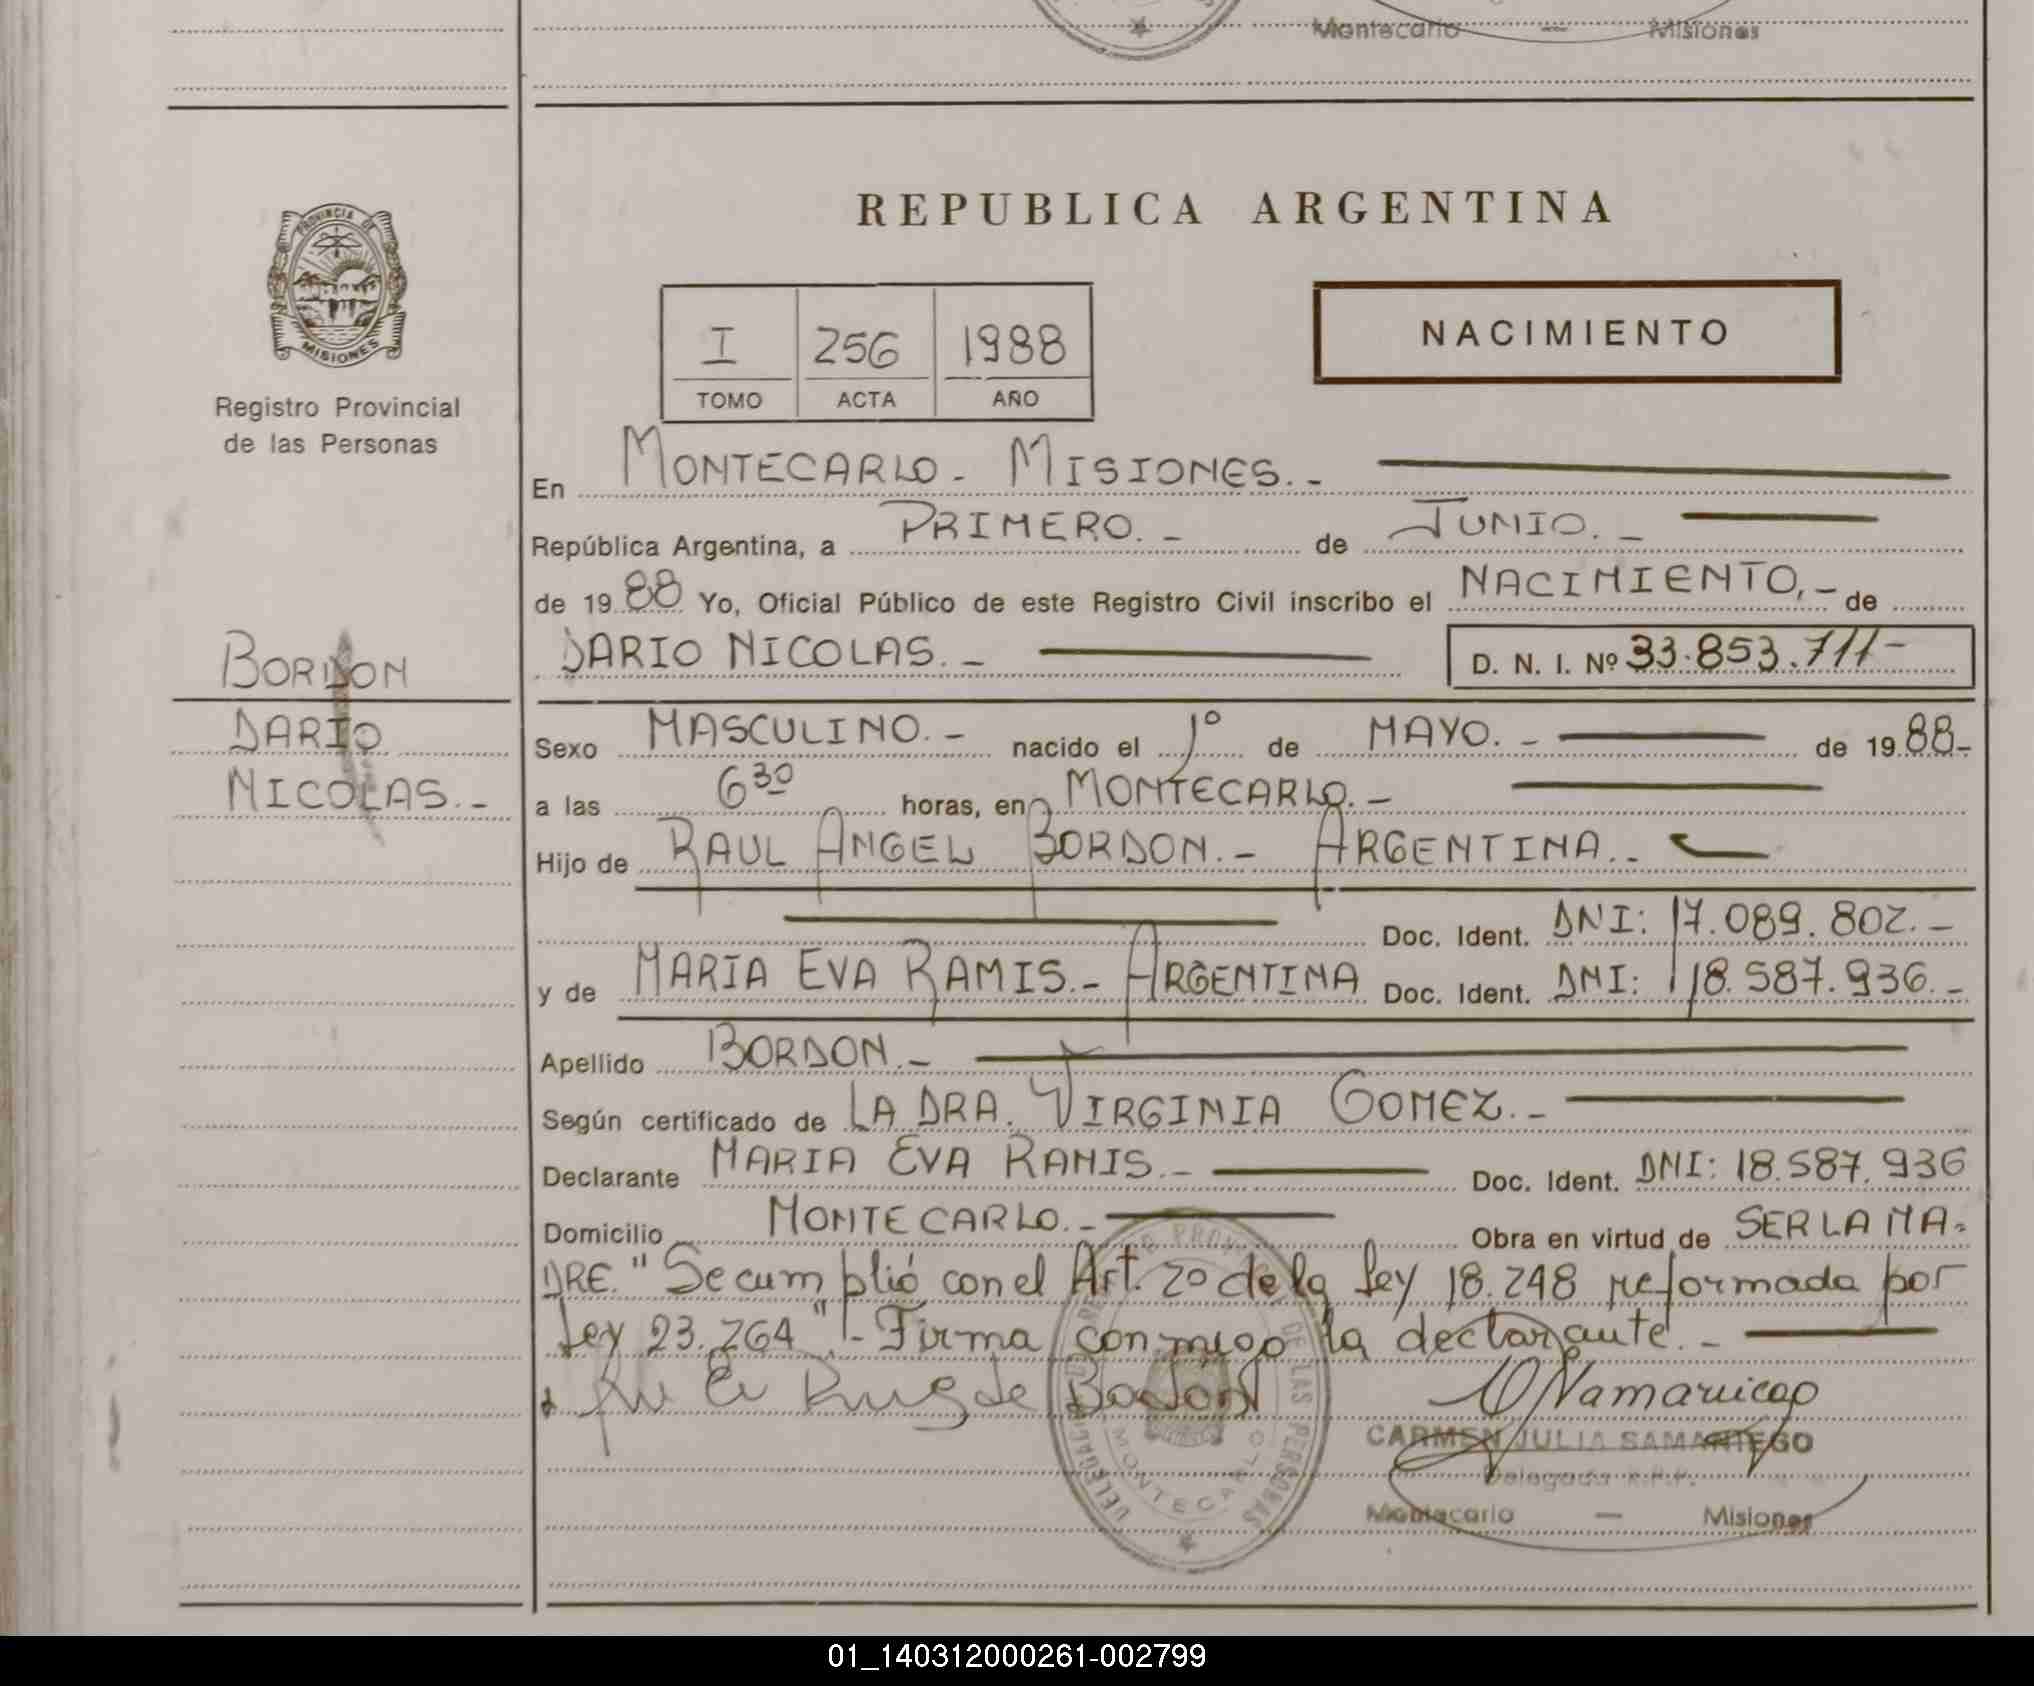 Montecarlo — Misiones
REPUBLICA ARGENTINA
PROVINCIA DE
MISIONES
I 256 1988
TOMO ACTA AÑO
NACIMIENTO
Registro Provincial
de las Personas
En MONTECARLO - MISIONES.-
República Argentina, a PRIMERO.- de JUNIO.-
de 1988 Yo, Oficial Público de este Registro Civil inscribo el NACIMIENTO,- de
DARIO NICOLAS.- D. N. I. Nº 33.853.711-
BORDON
DARIO
NICOLAS.-
Sexo MASCULINO.- nacido el 1º de MAYO.- de 1988-
a las 6 30 horas, en MONTECARLO.-
Hijo de RAUL ANGEL BORDON.- ARGENTINA.-
Doc. Ident. DNI: 17.089.802.-
y de MARIA EVA RAMIS.- ARGENTINA Doc. Ident. DNI: 18.587.936.-
Apellido BORDON.-
Según certificado de LA DRA. VIRGINIA GOMEZ.-
Declarante MARIA EVA RAMIS.- Doc. Ident. DNI: 18.587.936
Domicilio MONTECARLO.- Obra en virtud de SER LA MA-
DRE. "Se cumplió con el Art. 2º de la Ley 18.248 reformada por
Ley 23.264".- Firma conmigo la declarante.-
de Bordon
CARMEN JULIA SAMANIEGO
Delegada R.P.P.
Montecarlo — Misiones
DE LAS PERSONAS
MONTECARLO
01_140312000261-002799